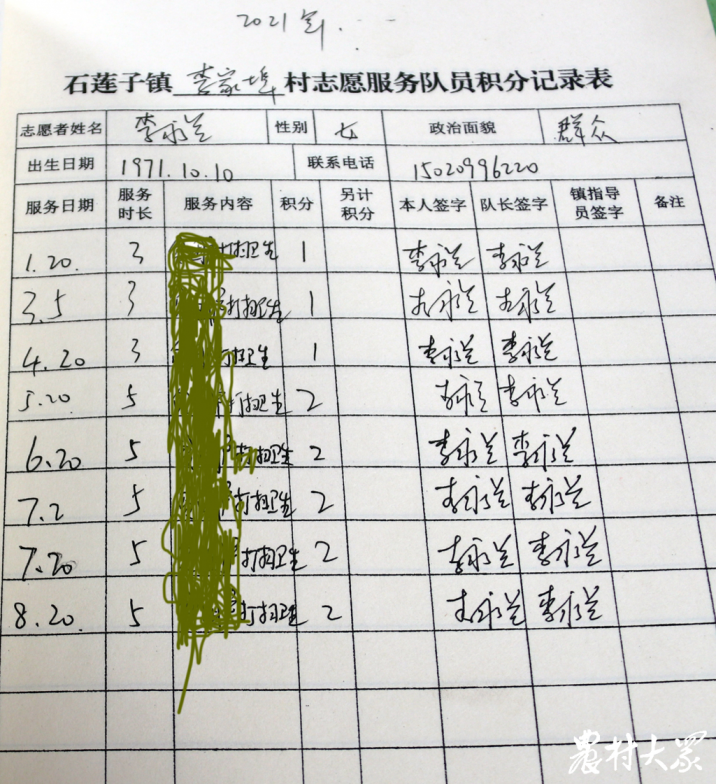 2021年
石莲子镇 李家埠 村志愿服务队员积分记录表
志愿者姓名 李永兰 性别 女 政治面貌 群众
出生日期 1971.10.10 联系电话 15020996220
服务日期 服务时长 服务内容 积分 另计积分 本人签字 队长签字 镇指导员签字 备注
1.20. 3 打扫卫生 1 李永兰 李永兰
3.5 3 打扫卫生 1 李永兰 李永兰
4.20 3 打扫卫生 1 李永兰 李永兰
5.20 5 打扫卫生 2 李永兰 李永兰
6.20 5 打扫卫生 2 李永兰 李永兰
7.2 5 打扫卫生 2 李永兰 李永兰
7.20 5 打扫卫生 2 李永兰 李永兰
8.20 5 打扫卫生 2 李永兰 李永兰
農村大眾